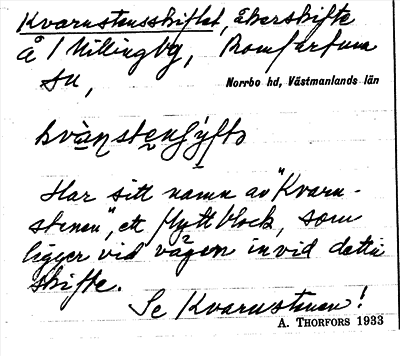 Kvarnstensskiftet, åkerskifte
å 1 Millingby, Romfartuna
sn,
Norrbo hd, Västmanlands län
Har sitt namn av "Kvarn-
stenen", ett flyttblock, som
ligger vid vägen invid detta
skifte.
Se Kvarnstenen!
A. THORFORS 1933